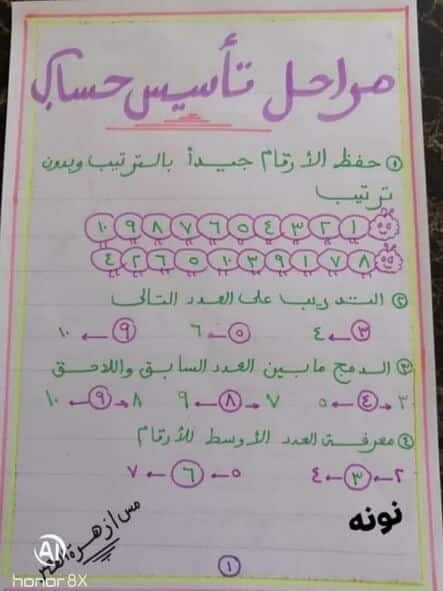 مراحل تأسيس حساب
① حفظ الأرقام جيدآ بالترتيب وبدون
ترتيب
١ ٢ ٣ ٤ ٥ ٦ ٧ ٨ ٩ ١٠
٨ ٧ ١ ٩ ٣ ١٠ ٥ ٦ ٢ ٤
② التدريب على العدد التالى
٣ ← ٤ ٥ ← ٦ ٩ ← ١٠
③ الدمج ما بين العدد السابق واللاحق
٣ → ٤ ← ٥ ٧ → ٨ ← ٩ ٨ → ٩ ← ١٠
④ معرفة العدد الأوسط للأرقام
٢ ← ٣ ← ٤ ٥ ← ٦ ← ٧
نونه
مس / زهرة
١
AI
honor 8X